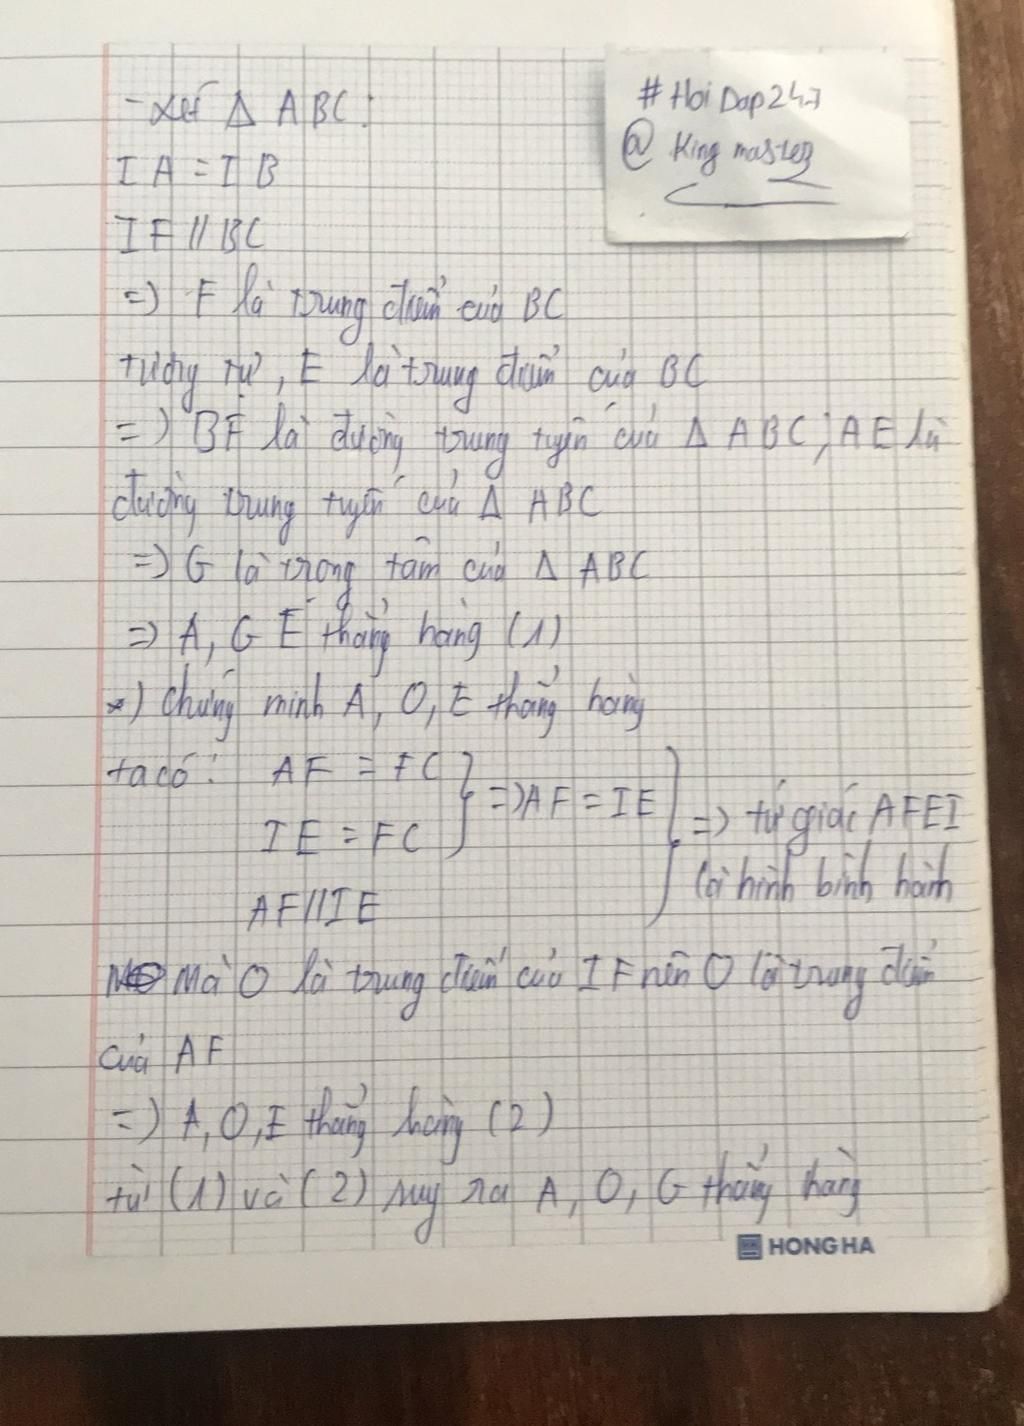 - xét Δ ABC:
IA = IB
IF // BC
=) F là trung điểm của BC
tương tự, E là trung điểm của BC
=) BF là đường trung tuyến của Δ ABC; AE là
đường trung tuyến của Δ ABC
=) G là trọng tâm của Δ ABC
=) A, G E thẳng hàng (1)
*) chứng minh A, O, E thẳng hàng
ta có: AF = FC } =) AF = IE } =) tứ giác AFEI
IE = FC
là hình bình hành
AF // IE
Mà O là trung điểm của IF nên O là trung điểm
của AF
=) A, O, E thẳng hàng (2)
từ (1) và (2) suy ra A, O, G thẳng hàng
# Hoi Dap 247
@ King master
HONG HA